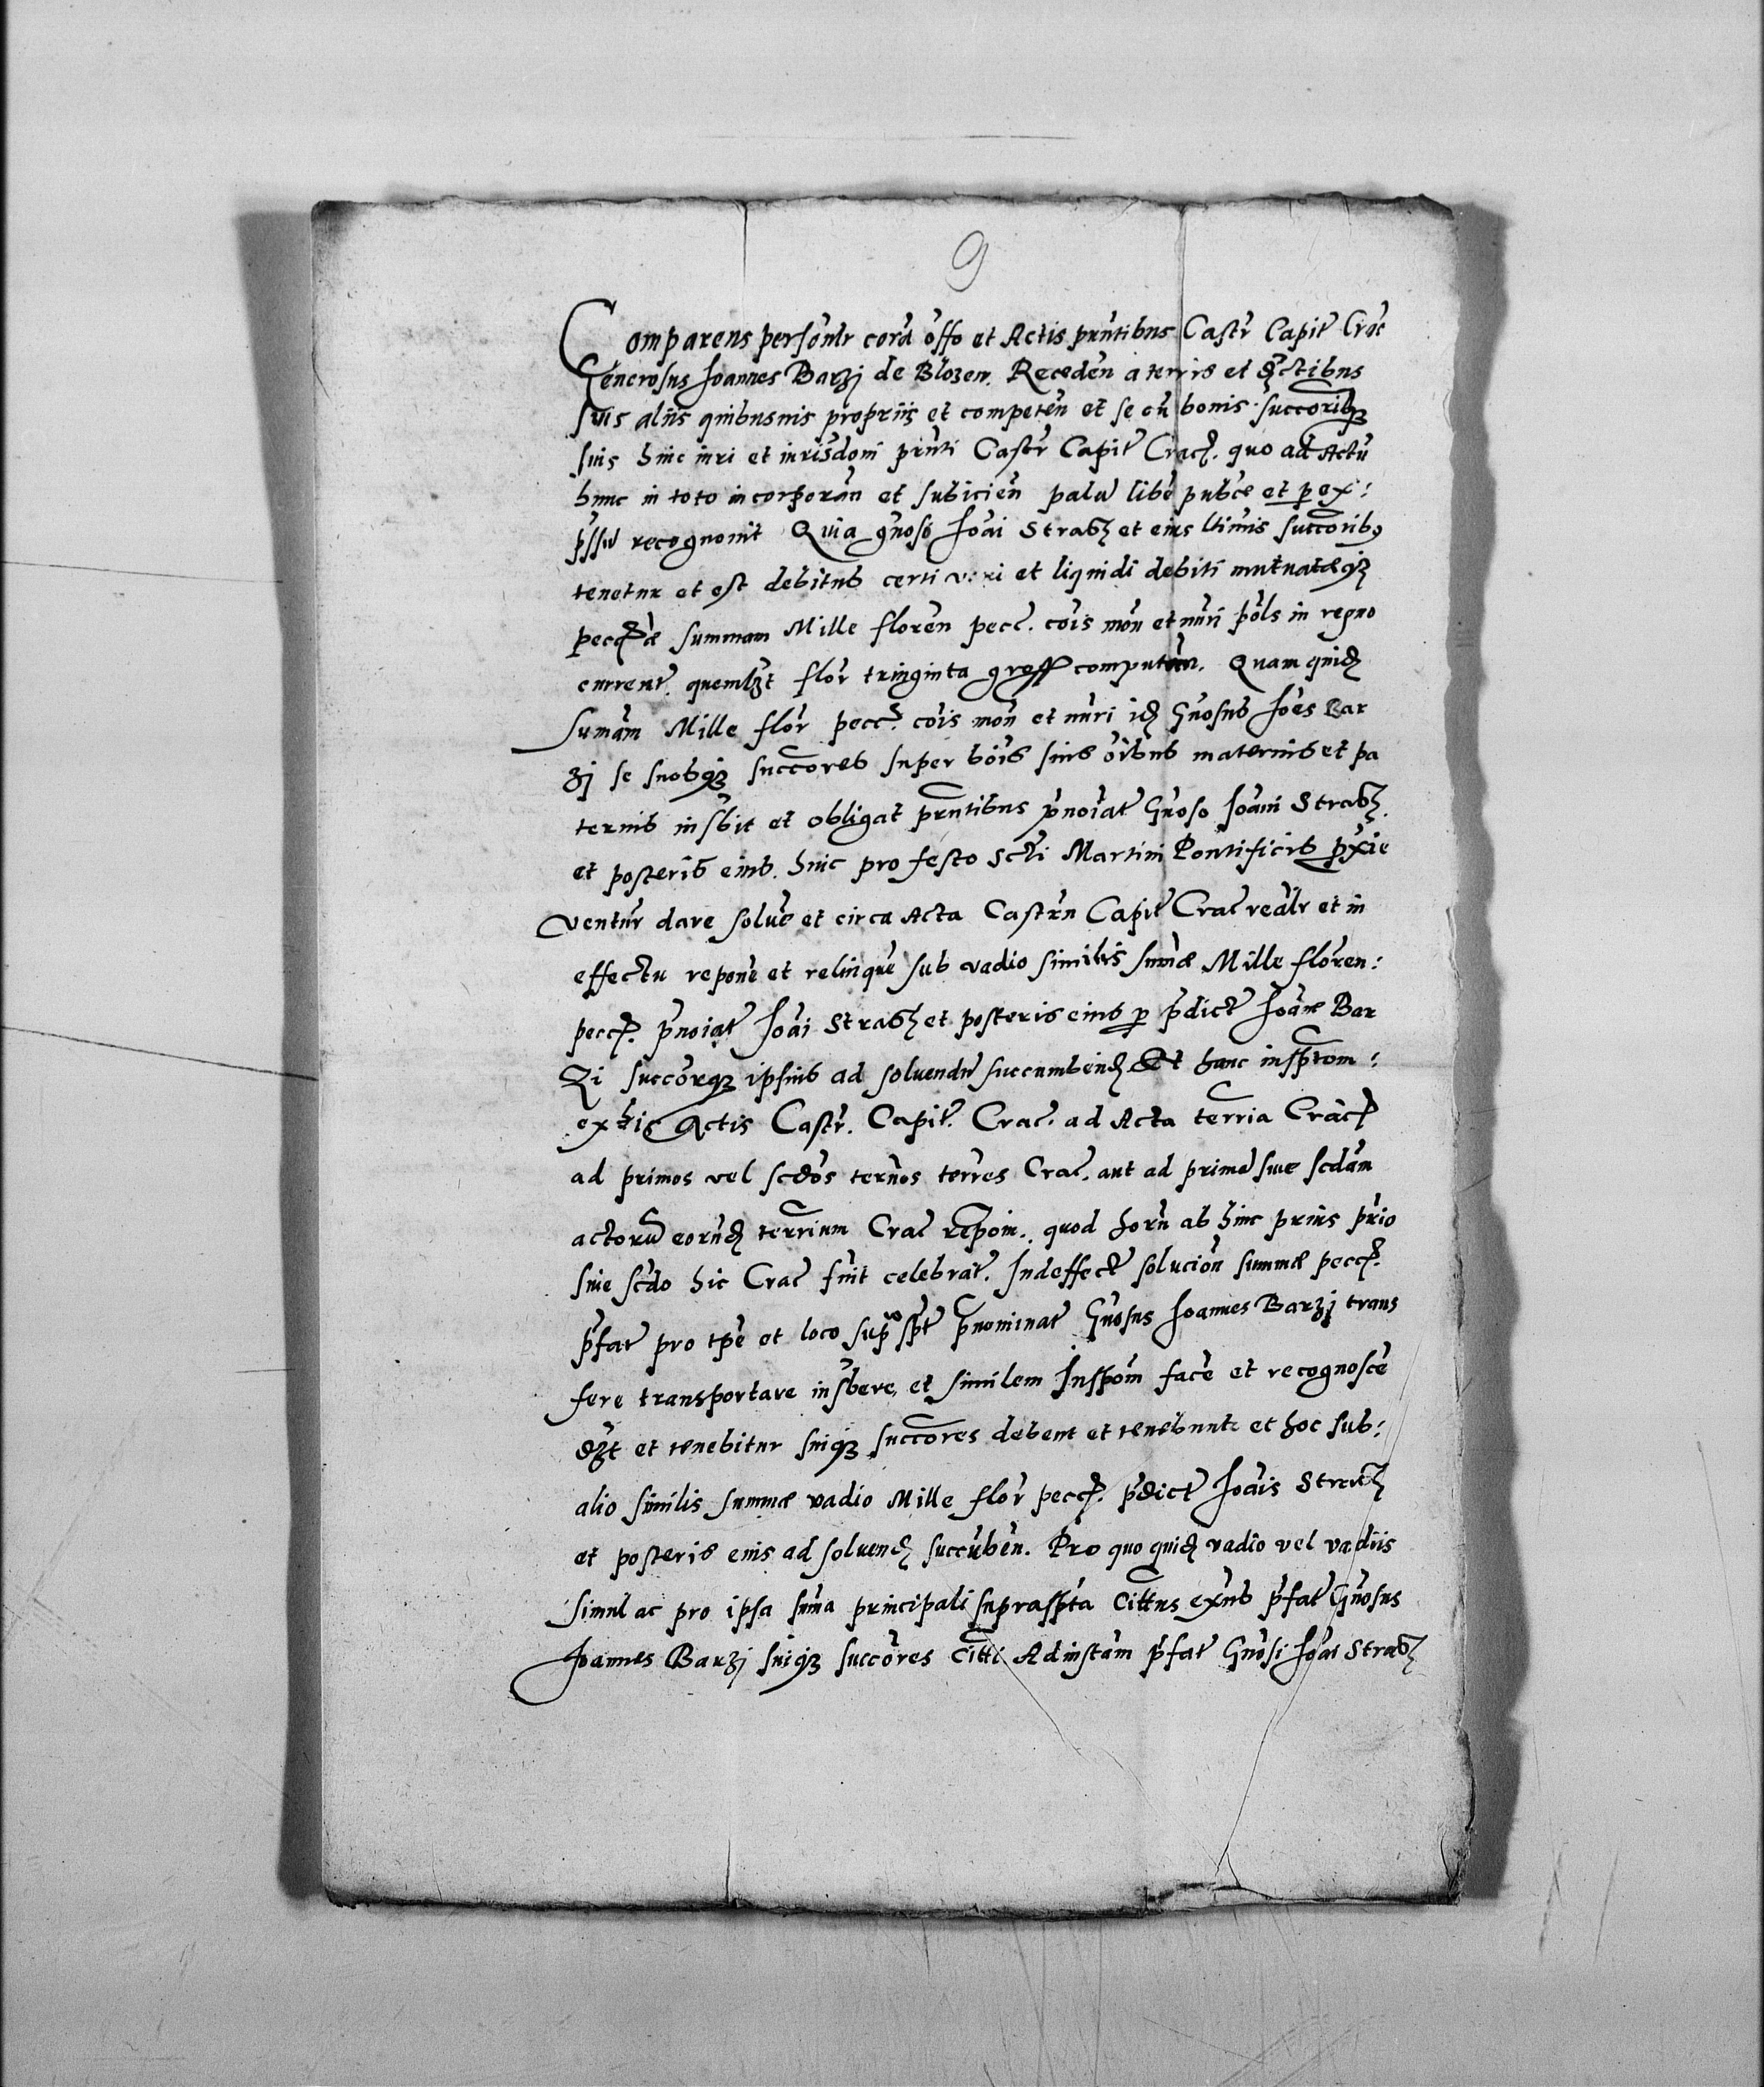 9
Comparens personlr corā offo et Actis prntibus Castr Capit Crac
Generosus Joannes Barzj de Blozew. Receden a terris et dictibus
suis aliis quibusuis propriis et competen et se cu bonis succoribq
suis huic iuri et iurisdoni prnti Castr Capit Crac. quo ad Actu
hunc in toto incorporan et subicien palā libe pubce et p ex:
pssu recognouit Quia gnoso Joai Strasz et eius ltimis succoribq
tenetur et est debitus certi veri et liquidi debiti mutuateqz
pecc summam Mille floren pecc. cois mon et nūri pols in regno
current. quemlzt flor tringinta gross computan. Quam quid
sumam Mille flor pecc. cois mon et nūri id Gnosus Joes Bar
zj se suosqz succores super bois suis oibus maternis et pa
ternis insbit et obligat prntibus pnoiat Gnoso Joani Strasz.
et posteris eius. huic pro festo Scti Martini Pontificis pxie
ventur dare solue et circa Acta Castrn Capit Crac realr et in
effectu repone et relinque sub vadio similis sume Mille floren:
pecc. pnoiat Joai Strasz et posteris eius p pdict Joane Bar
Zi succorqz ipsius ad soluendu succumbend. Et hanc insptom:
ex his Actis Castr. Capit. Crac. ad Acta terria Crac
ad primos vel scdos termos terres Crac. aut ad prima siue scdam
actoru eorund terrium Crac repoin. quod foru ab hinc prius prio
siue scdo hic Crac fuit celebrat. Indeffect solucion summe pecc.
pfat pro tpe et loco suprospt pnominat Gnosus Joannes Barzj trans
fere transportare insbere, et similem Inspom face et recognosce
dzt et tenebitur suiqz succores debent et tenebunt et hoc sub:
alio similis summe vadio Mille flor pecc. pdict Joais Strasz
et posteris eius ad soluend succuben. Pro quo quid vadio vel vadiis
simul ac pro ipsa suma principali supraspta cittus exns pfat Gnosus
Joannes Barzj suiqz succores citti Ad instam pfat Gnosi Joai Strasz